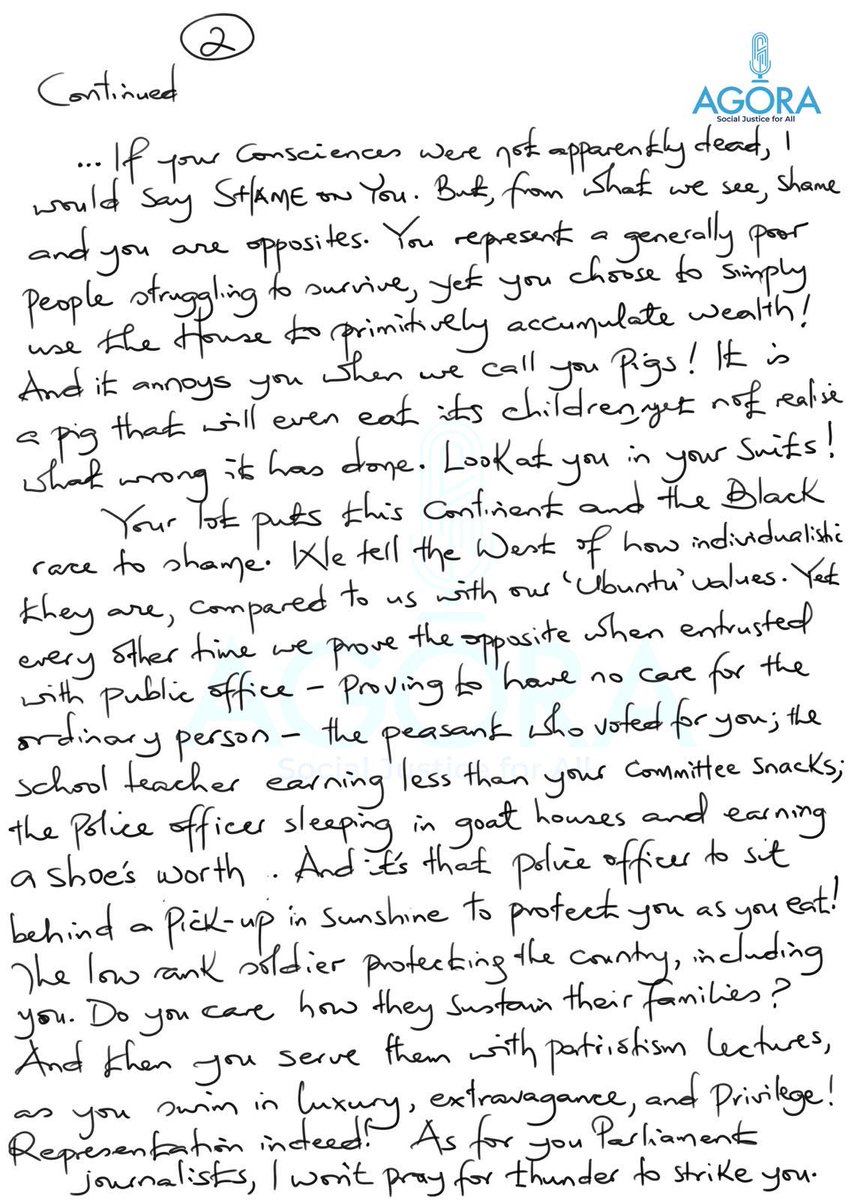 2
Continued
AGORA
Social Justice for All
... If your Consciences were not apparently dead, I
would say SHAME on You. But, from what we see, shame
and you are opposites. You represent a generally poor
people struggling to survive, yet you choose to simply
use the House to primitively accumulate wealth!
And it annoys you when we call you Pigs! It is
a pig that will even eat its children, yet not realise
what wrong it has done. Look at you in your Suits!
Your lot puts this Continent and the Black
race to shame. We tell the West of how individualistic
they are, compared to us with our 'Ubuntu' values. Yet
every other time we prove the opposite when entrusted
with public office - Proving to have no care for the
ordinary person - the peasant who voted for you; the
school teacher earning less than your Committee Snacks;
the Police officer sleeping in goat houses and earning
a shoe's worth. And it's that police officer to sit
behind a Pick-up in sunshine to protect you as you eat!
The low rank soldier protecting the country, including
you. Do you care how they sustain their families?
And then you serve them with patriotism lectures,
as you swim in luxury, extravagance, and Privilege!
Representation indeed! As for you Parliament
journalists, I won't pray for thunder to strike you.
AGORA
Social Justice for All